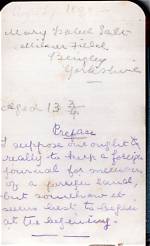 Mary Isabel Salt
Milner Field
Bingley
Yorkshire
aged 13 3/4
Preface
I suppose one ought
really to keep a foreign
journal for memories
of a foreign land,
but somehow it
seems best to begin
at the beginning.